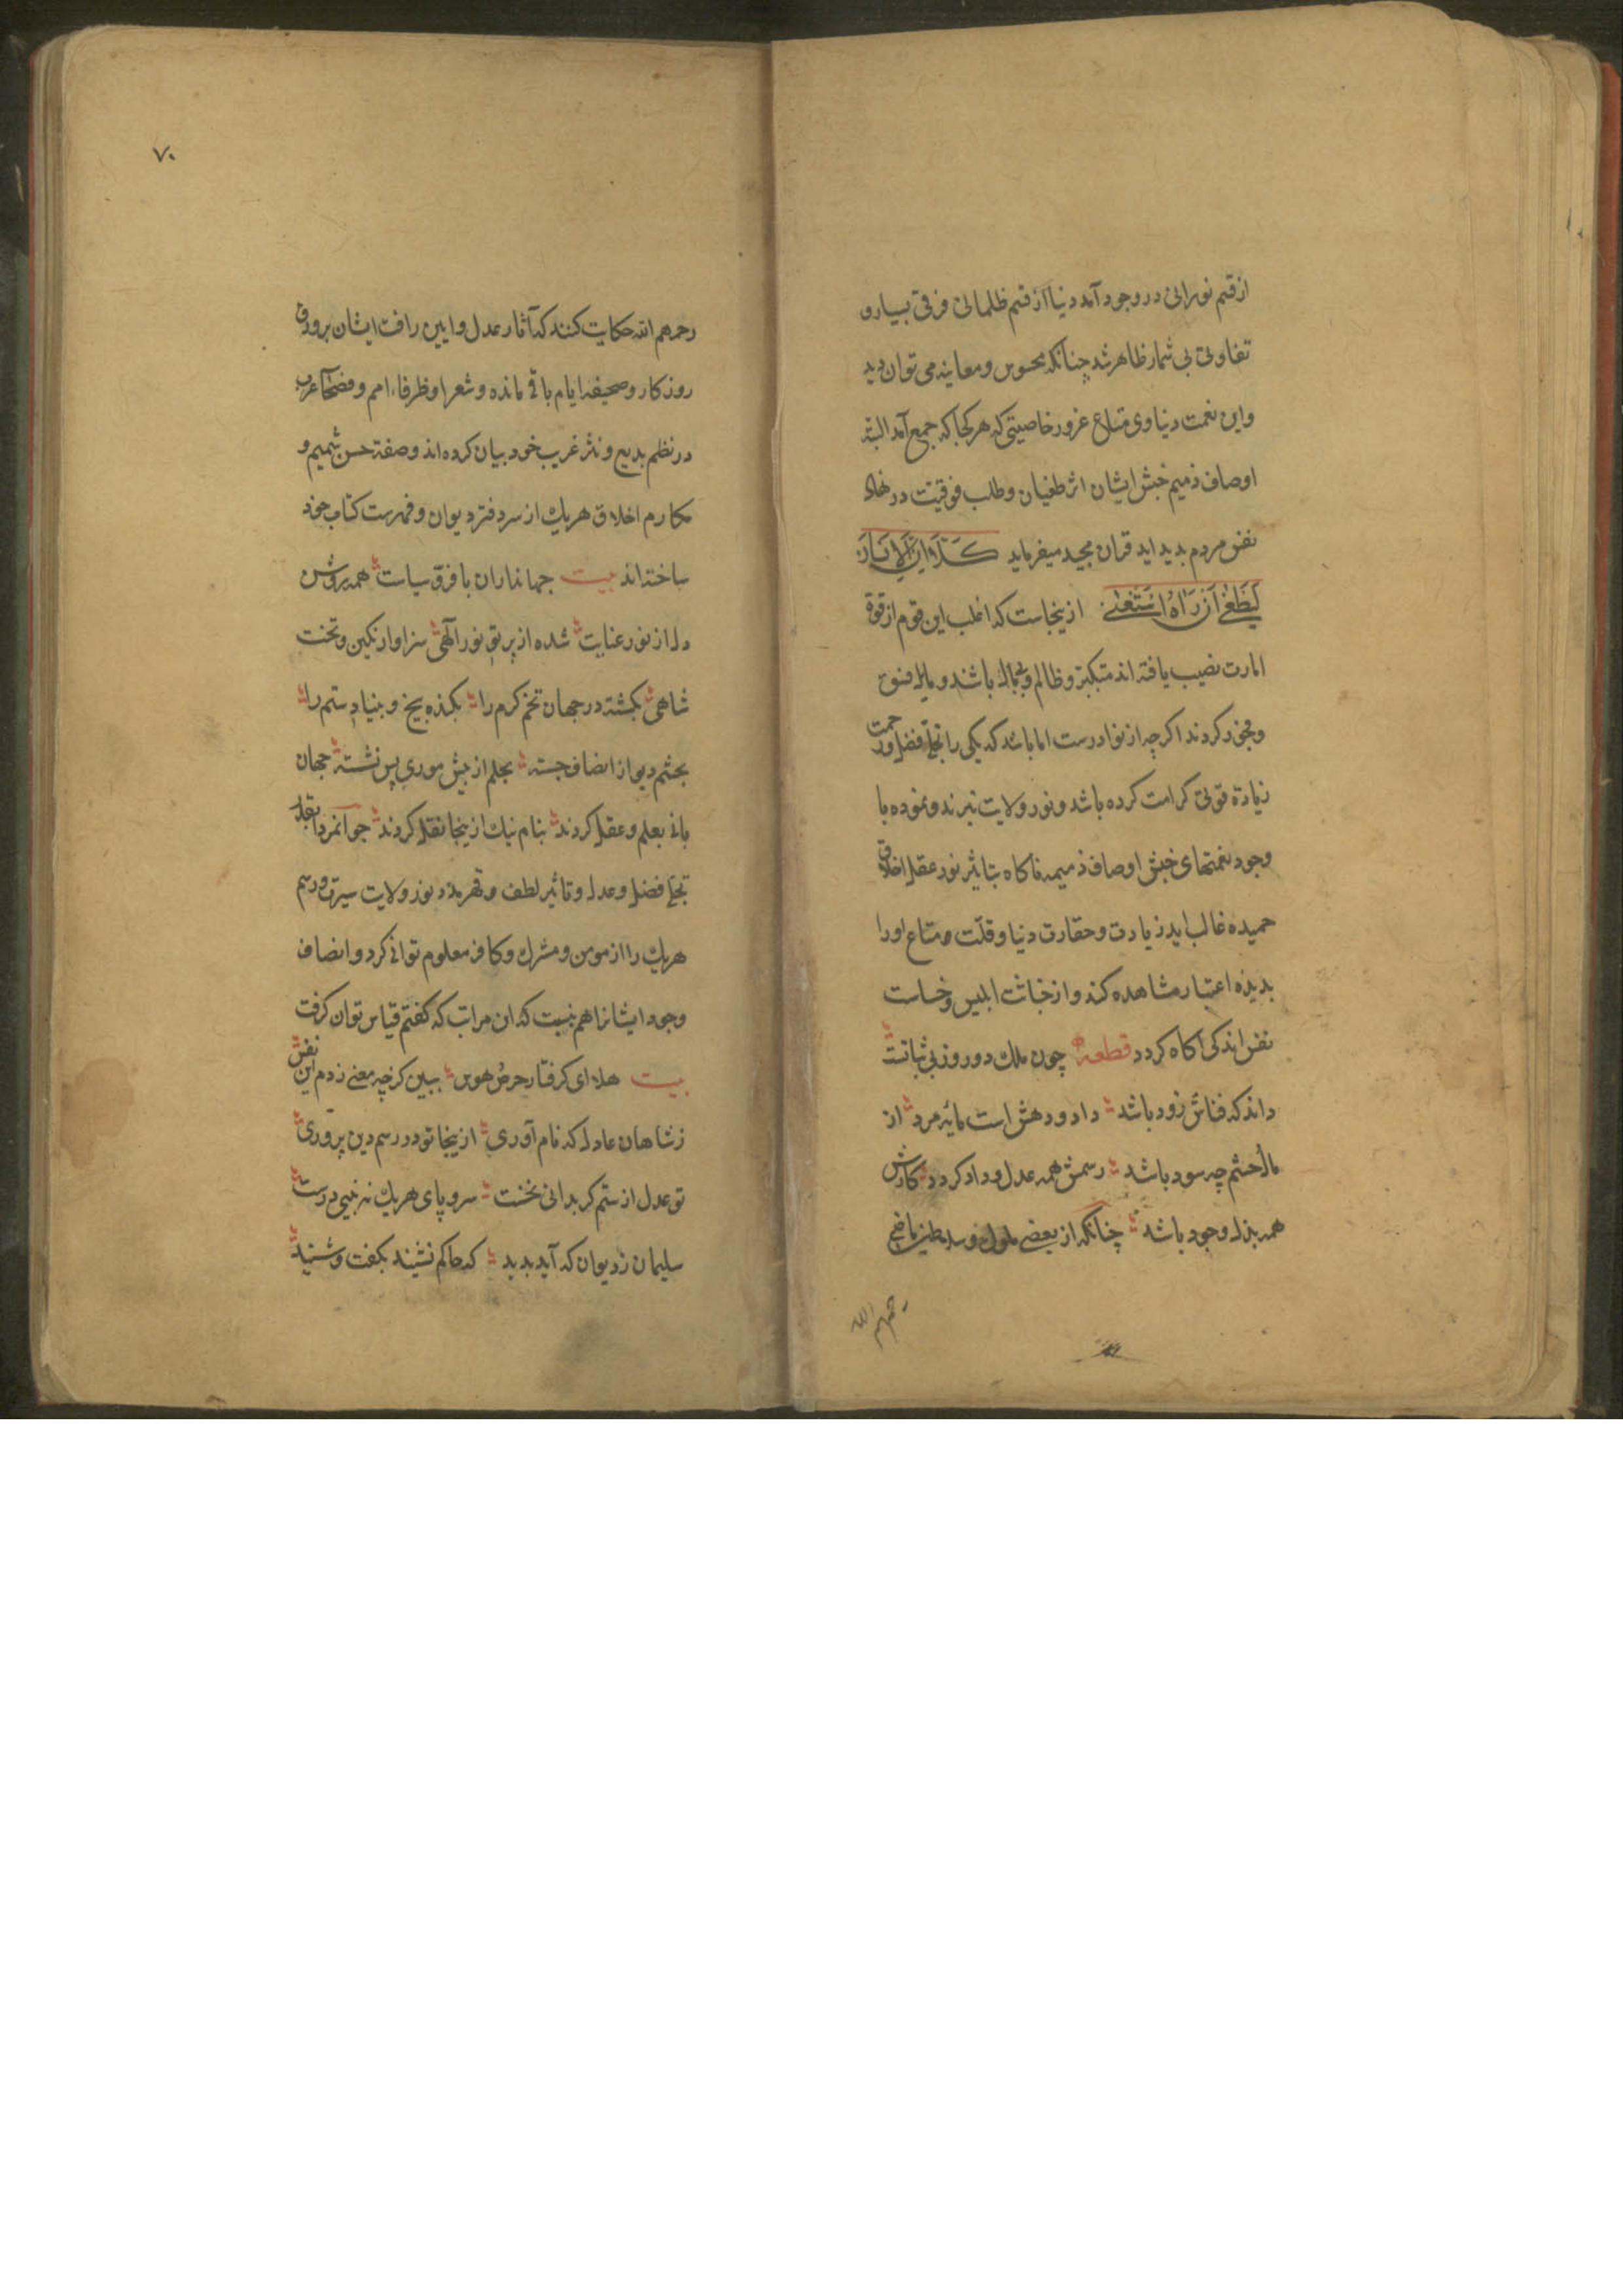 از قسم نورانی در وجود آمد دنیا از قسم ظلمانی فرقی بسیار و
تفاوتی بی شمار ظاهر شد چنانکه محسوس و معاینه می توان دید
واین نعمت دنیاوی متاع غرور خاصیتی که هر کجا که جمع آمد البته
اوصاف ذمیم خبش ایشان اثر طغیان وطلب فوقیت در نهاد
نفس مردم بدید اید قران مجید میفرماید كَلَّا اِنَّ الاِنسَانَ
لَيَطْغٰى اَن رَاٰهُ اسْتَغْنٰى ازینجاست که اغلب این قوم از قوة
امارت نصیب یافته اند متکبر و ظالم و باشند و مایل فسق
و فجور کردند اکرچه از نوادرست اما باشد که یکی را تجلی فضل و رحمت
زیادة قوتی کرامت کرده باشد و نور ولایت نبرند و نموده با
وجود نعمتهای خبش اوصاف ذمیمه ناکاه بتاثیر نور عقل اخلاق
حمیده غالب اید زیادت وحقارت دنیا وقلت متاع اورا
بدیذه اعتبار مشاهده کند و از خباثت ابلیس وخساست
نفس اندکی اکاه کردد قطعه چون ملك دو روز بی ثباتست
داند که فناش زود باشد داد و دهش است مایه مرد از
مال حشم چه سود باشد رسمش همه عدل و داد کردد کارش
همه بذل وجود باشد چنانکه از بعضی ملوك و سلاطین ماضی
رحمهم الله
٧٠
رحمهم الله حکایت کنند که آثار عدل و ایین رافت ایشان بر ورق
روزکار وصحیفه ایام باقی مانده وشعرا وظرفاء امم وفصحاء عرب
در نظم بدیع و نثر غریب خود بیان کرده اند وصفة حسن شمیم و
مکارم اخلاق هریك از سر دفتر دیوان وفهرست کتاب خود
ساخته اند بیت جهانداران با فرق سیاست همه روشن
دل از نور عنایت شده از پرتو نور آلهی سزاوار نکین و تخت
شاهی بکشته در جهان تخم کرم را بکنده بیخ و بنیاد ستم را
بچشم دیو از انصاف جسته بحلم از پیش موری پس نشسته جهان
بانی بعلم وعقل کردند بنام نیك ازینجا نقل کردند جوانمردا بقدر
تجلی فضل وعدل وتاثیر لطف و قهر نور ولایت سیرت ورسم
هریك را از مومن ومشرك وکافر معلوم توانی کرد و انصاف
وجود ایشانرا هم بنسبت که ان مراتب که کفتم قیاس توان کرفت
بیت هلا ای کرفتار حرص هوس ببین کز چه معنی زدم این نفس
ز شاهان عادل که نام آوری ازینجا تو در رسم دین پروری
تو عدل از ستم کر بدانی نخست سر و پای هریك نه بینی درست
سلیمان ز دیوان که آید بدید که حاکم نشیند بکفت وشنید